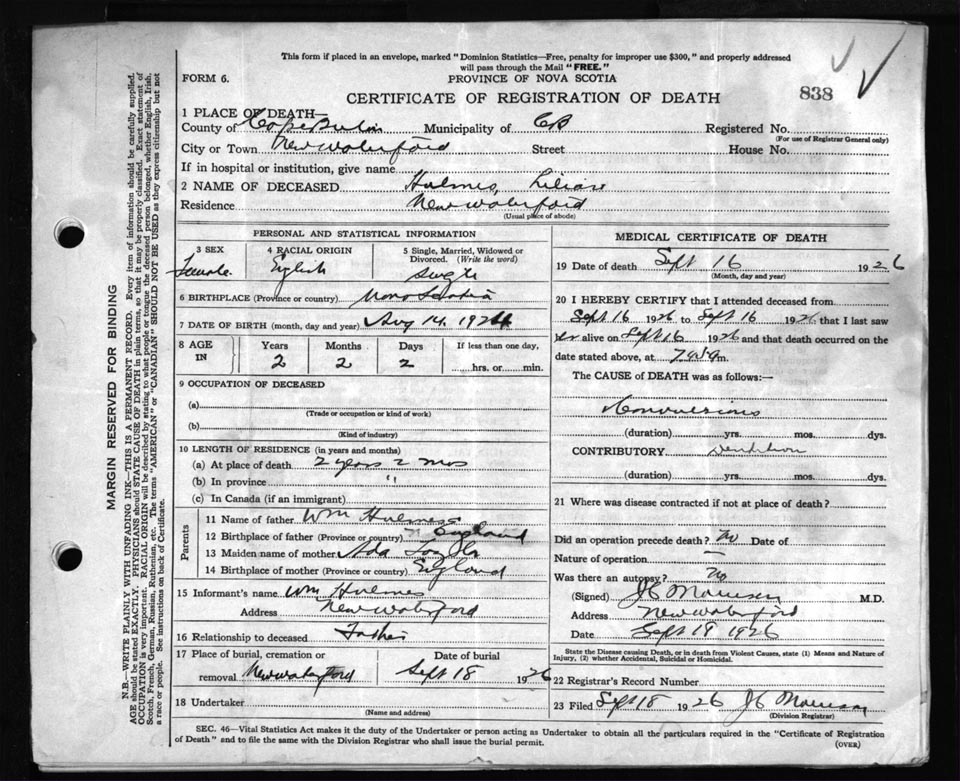 This form if placed in an envelope, marked "Dominion Statistics—Free, penalty for improper use $300," and properly addressed
will pass through the Mail "FREE."
FORM 6.
PROVINCE OF NOVA SCOTIA
CERTIFICATE OF REGISTRATION OF DEATH
838
1 PLACE OF DEATH—
County of Cape Breton Municipality of CB Registered No.
(For use of Registrar General only)
City or Town New Waterford Street House No.
If in hospital or institution, give name
2 NAME OF DECEASED Hulmes, Lilian
Residence New Waterford
(Usual place of abode)
PERSONAL AND STATISTICAL INFORMATION
3 SEX 4 RACIAL ORIGIN 5 Single, Married, Widowed or
Divorced. (Write the word)
Female English Single
6 BIRTHPLACE (Province or country) Nova Scotia
7 DATE OF BIRTH (month, day and year) Aug 14, 1924
8 AGE IN Years Months Days If less than one day,
2 2 2 hrs. or min.
9 OCCUPATION OF DECEASED
(a)
(Trade or occupation or kind of work)
(b)
(Kind of industry)
10 LENGTH OF RESIDENCE (in years and months)
(a) At place of death 2 years 2 mos
(b) In province "
(c) In Canada (if an immigrant)
Parents
11 Name of father Wm Hulmes
12 Birthplace of father (Province or country) England
13 Maiden name of mother Ada
14 Birthplace of mother (Province or country) England
15 Informant's name Wm Hulmes
Address New Waterford
16 Relationship to deceased Father
17 Place of burial, cremation or Date of burial
removal New Waterford Sept 18 1926
18 Undertaker
(Name and address)
MEDICAL CERTIFICATE OF DEATH
19 Date of death Sept 16 1926
(Month, day and year)
20 I HEREBY CERTIFY that I attended deceased from
Sept 16 1926 to Sept 16 1926 that I last saw
her alive on Sept 16 1926 and that death occurred on the
date stated above, at m.
The CAUSE of DEATH was as follows:—
Convulsions
(duration) yrs. mos. dys.
CONTRIBUTORY Dentition
(duration) yrs. mos. dys.
21 Where was disease contracted if not at place of death?
Did an operation precede death? No Date of
Nature of operation —
Was there an autopsy? No
(Signed) JC Morrison M.D.
Address New Waterford
Date Sept 19 1926
State the Disease causing Death, or in death from Violent Causes, state (1) Means and Nature of
Injury, (2) whether Accidental, Suicidal or Homicidal.
22 Registrar's Record Number
23 Filed Sept 18 1926 JC Morrison
(Division Registrar)
SEC. 46—Vital Statistics Act makes it the duty of the Undertaker or person acting as Undertaker to obtain all the particulars required in the "Certificate of Registration
of Death" and to file the same with the Division Registrar who shall issue the burial permit.
(OVER)
MARGIN RESERVED FOR BINDING
N.B.—WRITE PLAINLY WITH UNFADING INK—THIS IS A PERMANENT RECORD. Every item of information should be carefully supplied.
AGE should be stated EXACTLY. PHYSICIANS should STATE CAUSE OF DEATH in plain terms, so that it may be properly classified. Exact statement of
OCCUPATION is very important. RACIAL ORIGIN will be described by stating to what people or tongue the deceased person belonged, whether English, Irish,
Scotch, French, German, Russian, Ruthenian, etc. The terms "AMERICAN" or "CANADIAN" SHOULD NOT BE USED as they express citizenship but not
a race or people. See instructions on back of Certificate.